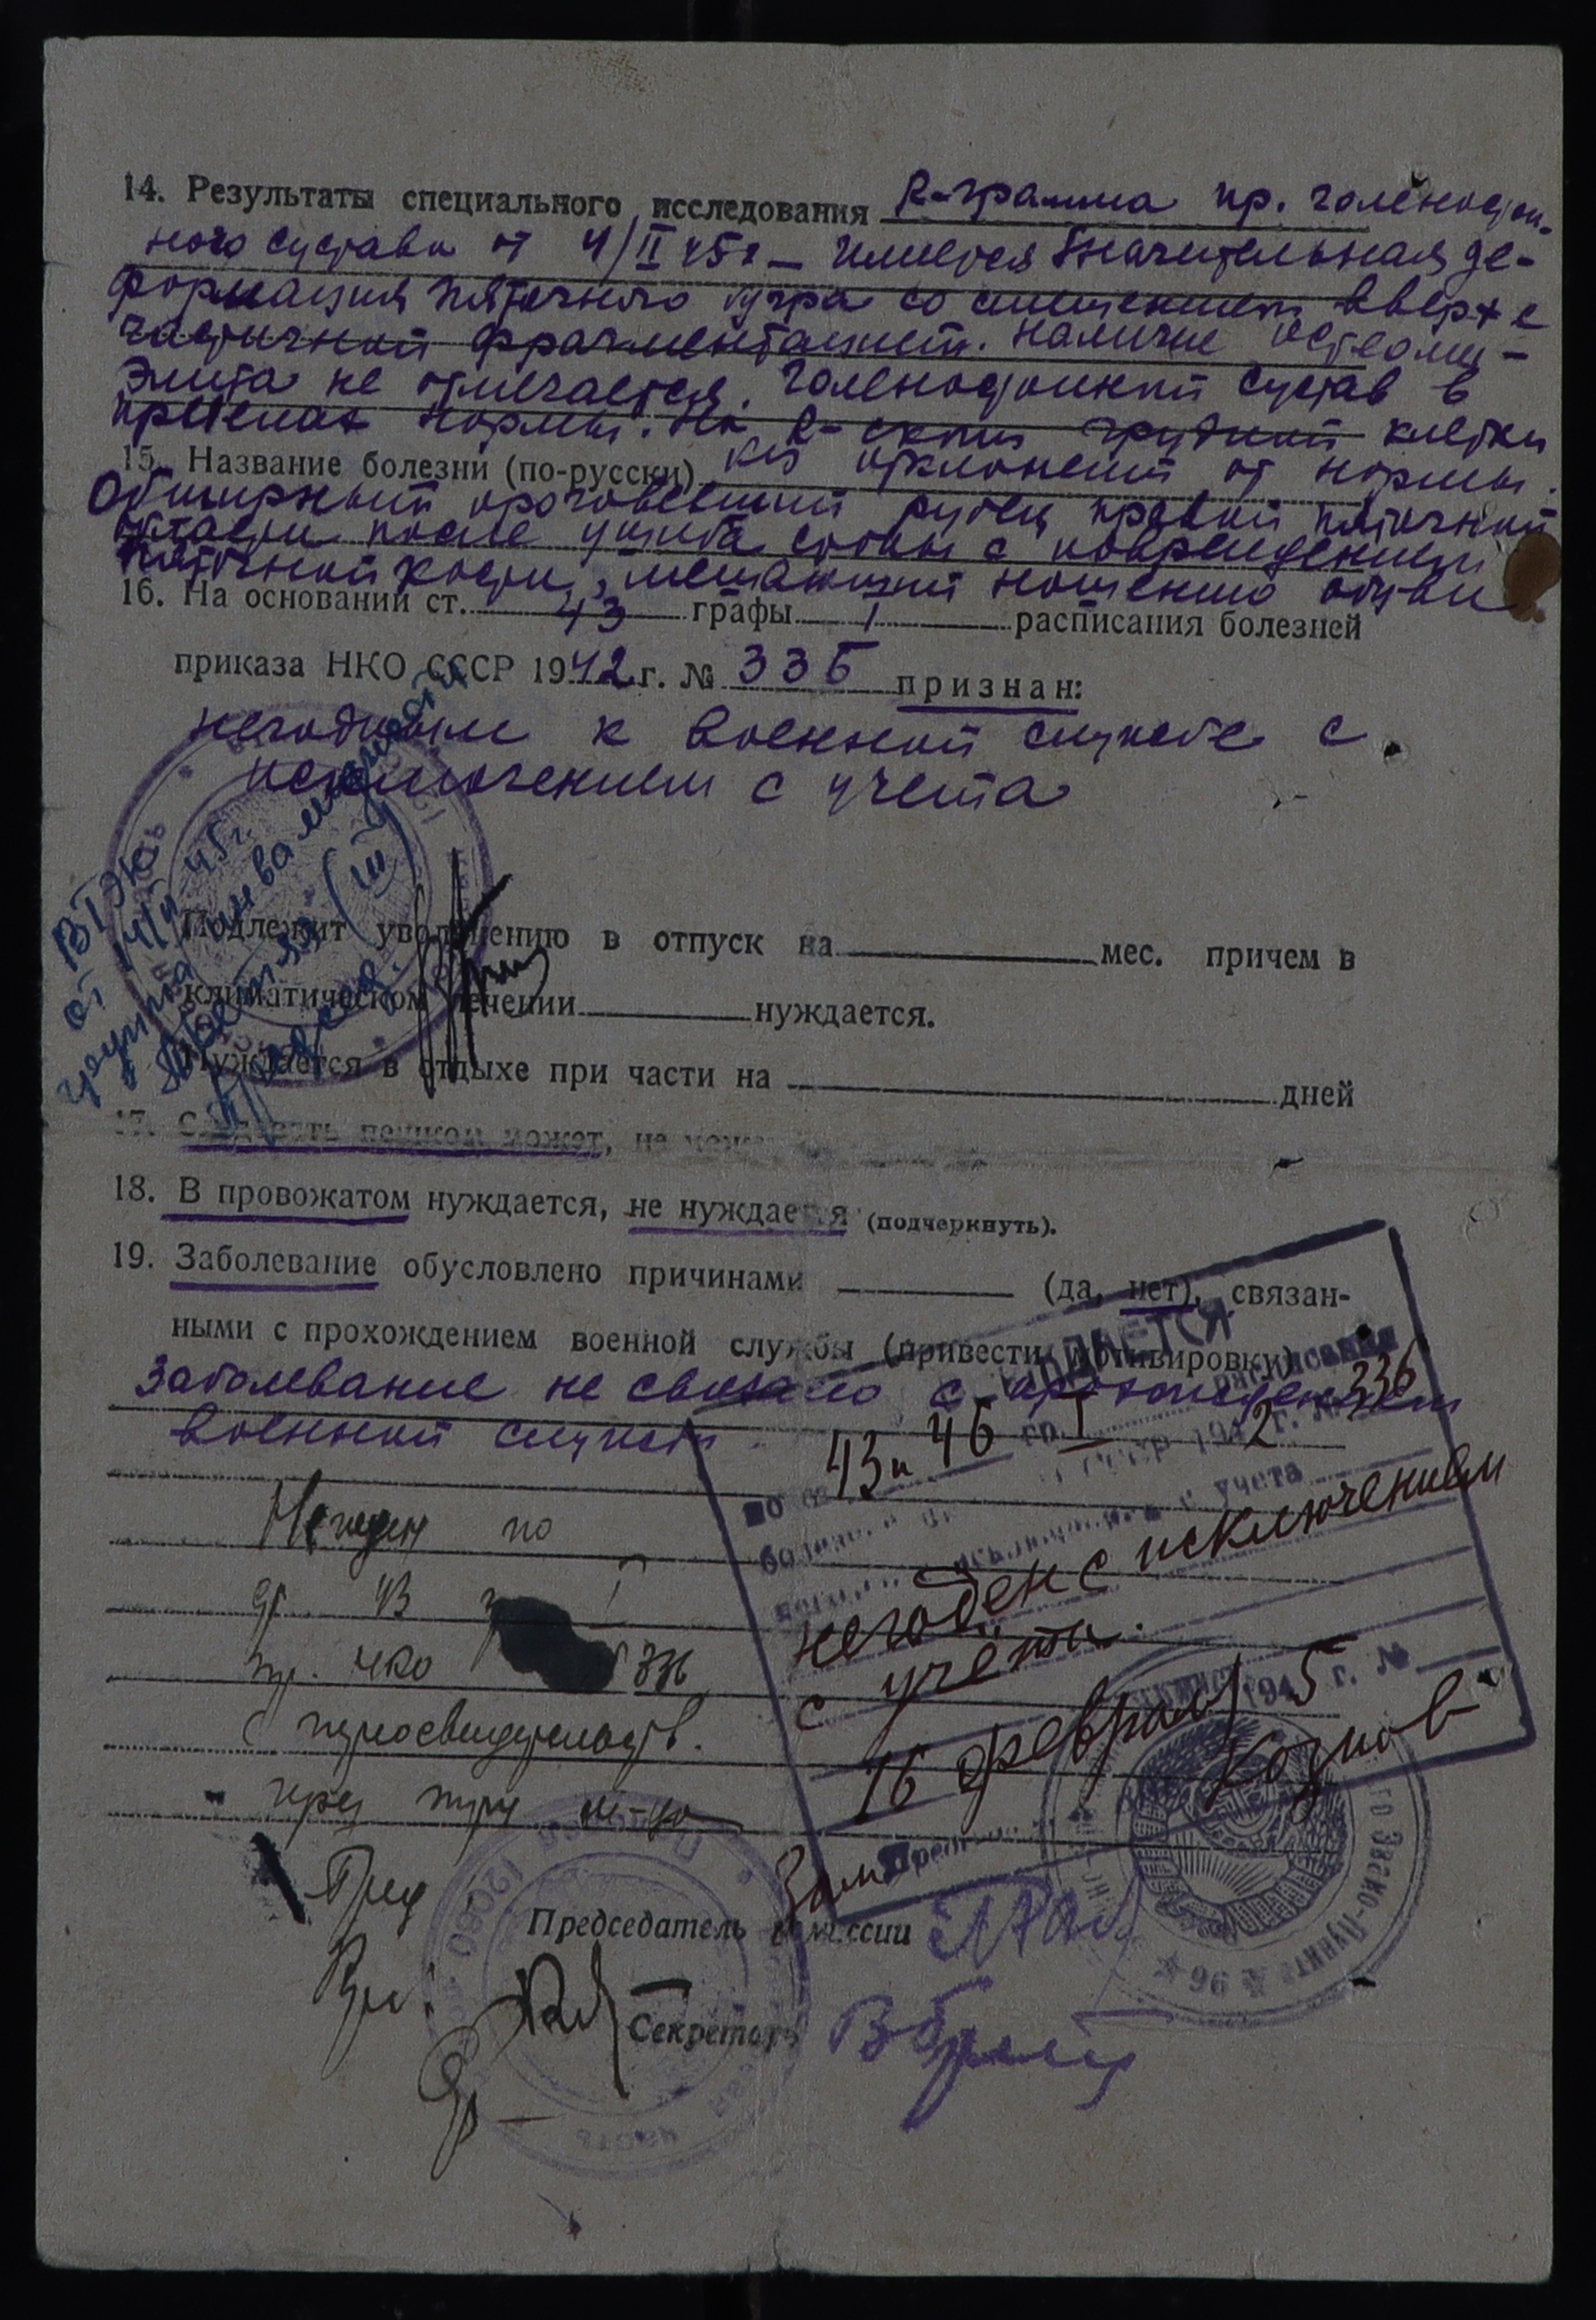 14. Результаты специального исследования R-грамма пр. голеностоп-
ного сустава от 4/II 45г – имеется значительная де-
формация пяточного бугра со смещением вверх с
частичной фрагментацией. Наличие остеоми-
элита не отмечается. Голеностопный сустав в
пределах нормы. На R-скопии грудной клетки
без отклонений от нормы.
15. Название болезни (по-русски)
Обширный ороговевший рубец правой пяточной
области после ушиба стопы с повреждением
пяточной кости, мешающий ношению обуви
16. На основании ст. 43 графы I расписания болезней
приказа НКО СССР 1942 г. № 336 признан:
негодным к военной службе с
исключением с учета
ВТЭК
от 14/II 45г.
группа инвалидности
третья (III)
Подлежит увольнению в отпуск на мес. причем в
климатическом лечении нуждается.
Нуждается в отдыхе при части на дней
17. Следовать пешком может, не может
18. В провожатом нуждается, не нуждается (подчеркнуть).
19. Заболевание обусловлено причинами (да, нет), связан-
ными с прохождением военной службы (привести мотивировку)
Заболевание не связано с прохождением
военной службы.
Негоден по
ст. 43 гр. I
пр. НКО 336
с переосвидетельств.
через три м-ца
Пред
43 и 46 гр. I
СССР 1942 г. № 336
с учета
негоден с исключением
с учёта.
16 февраля 1945 г. №
Зам Пред
Председатель комиссии
Секретарь
12060
часть
го Эвако-Пункта № 96